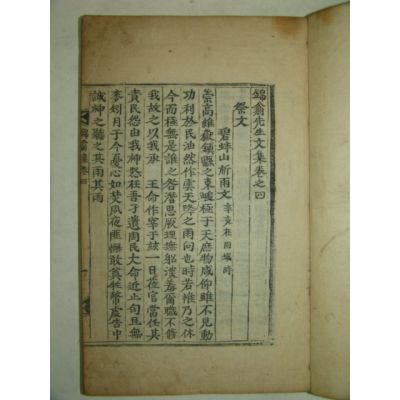 錦翁先生文集卷之四
祭文
碧蚌山祈雨文 辛亥在固城時
崇高維嶽鎮縣之東峻極于天庶物咸仰雖不見動
功利於民油然作雲天降之雨同也時若惟乃之休
今而極無是誰之咎潜思厥理撫躬羞爾職不脩
我故之以我承 王命作宰于玆一日莅官當任其
責民怨由我神怒在吾孑遺周民大命近止旬且無
麥矧月于今憂心如焚夙夜匪懈敢牲幣虔告中
誠神之聽之其雨其雨
錦翁集卷四